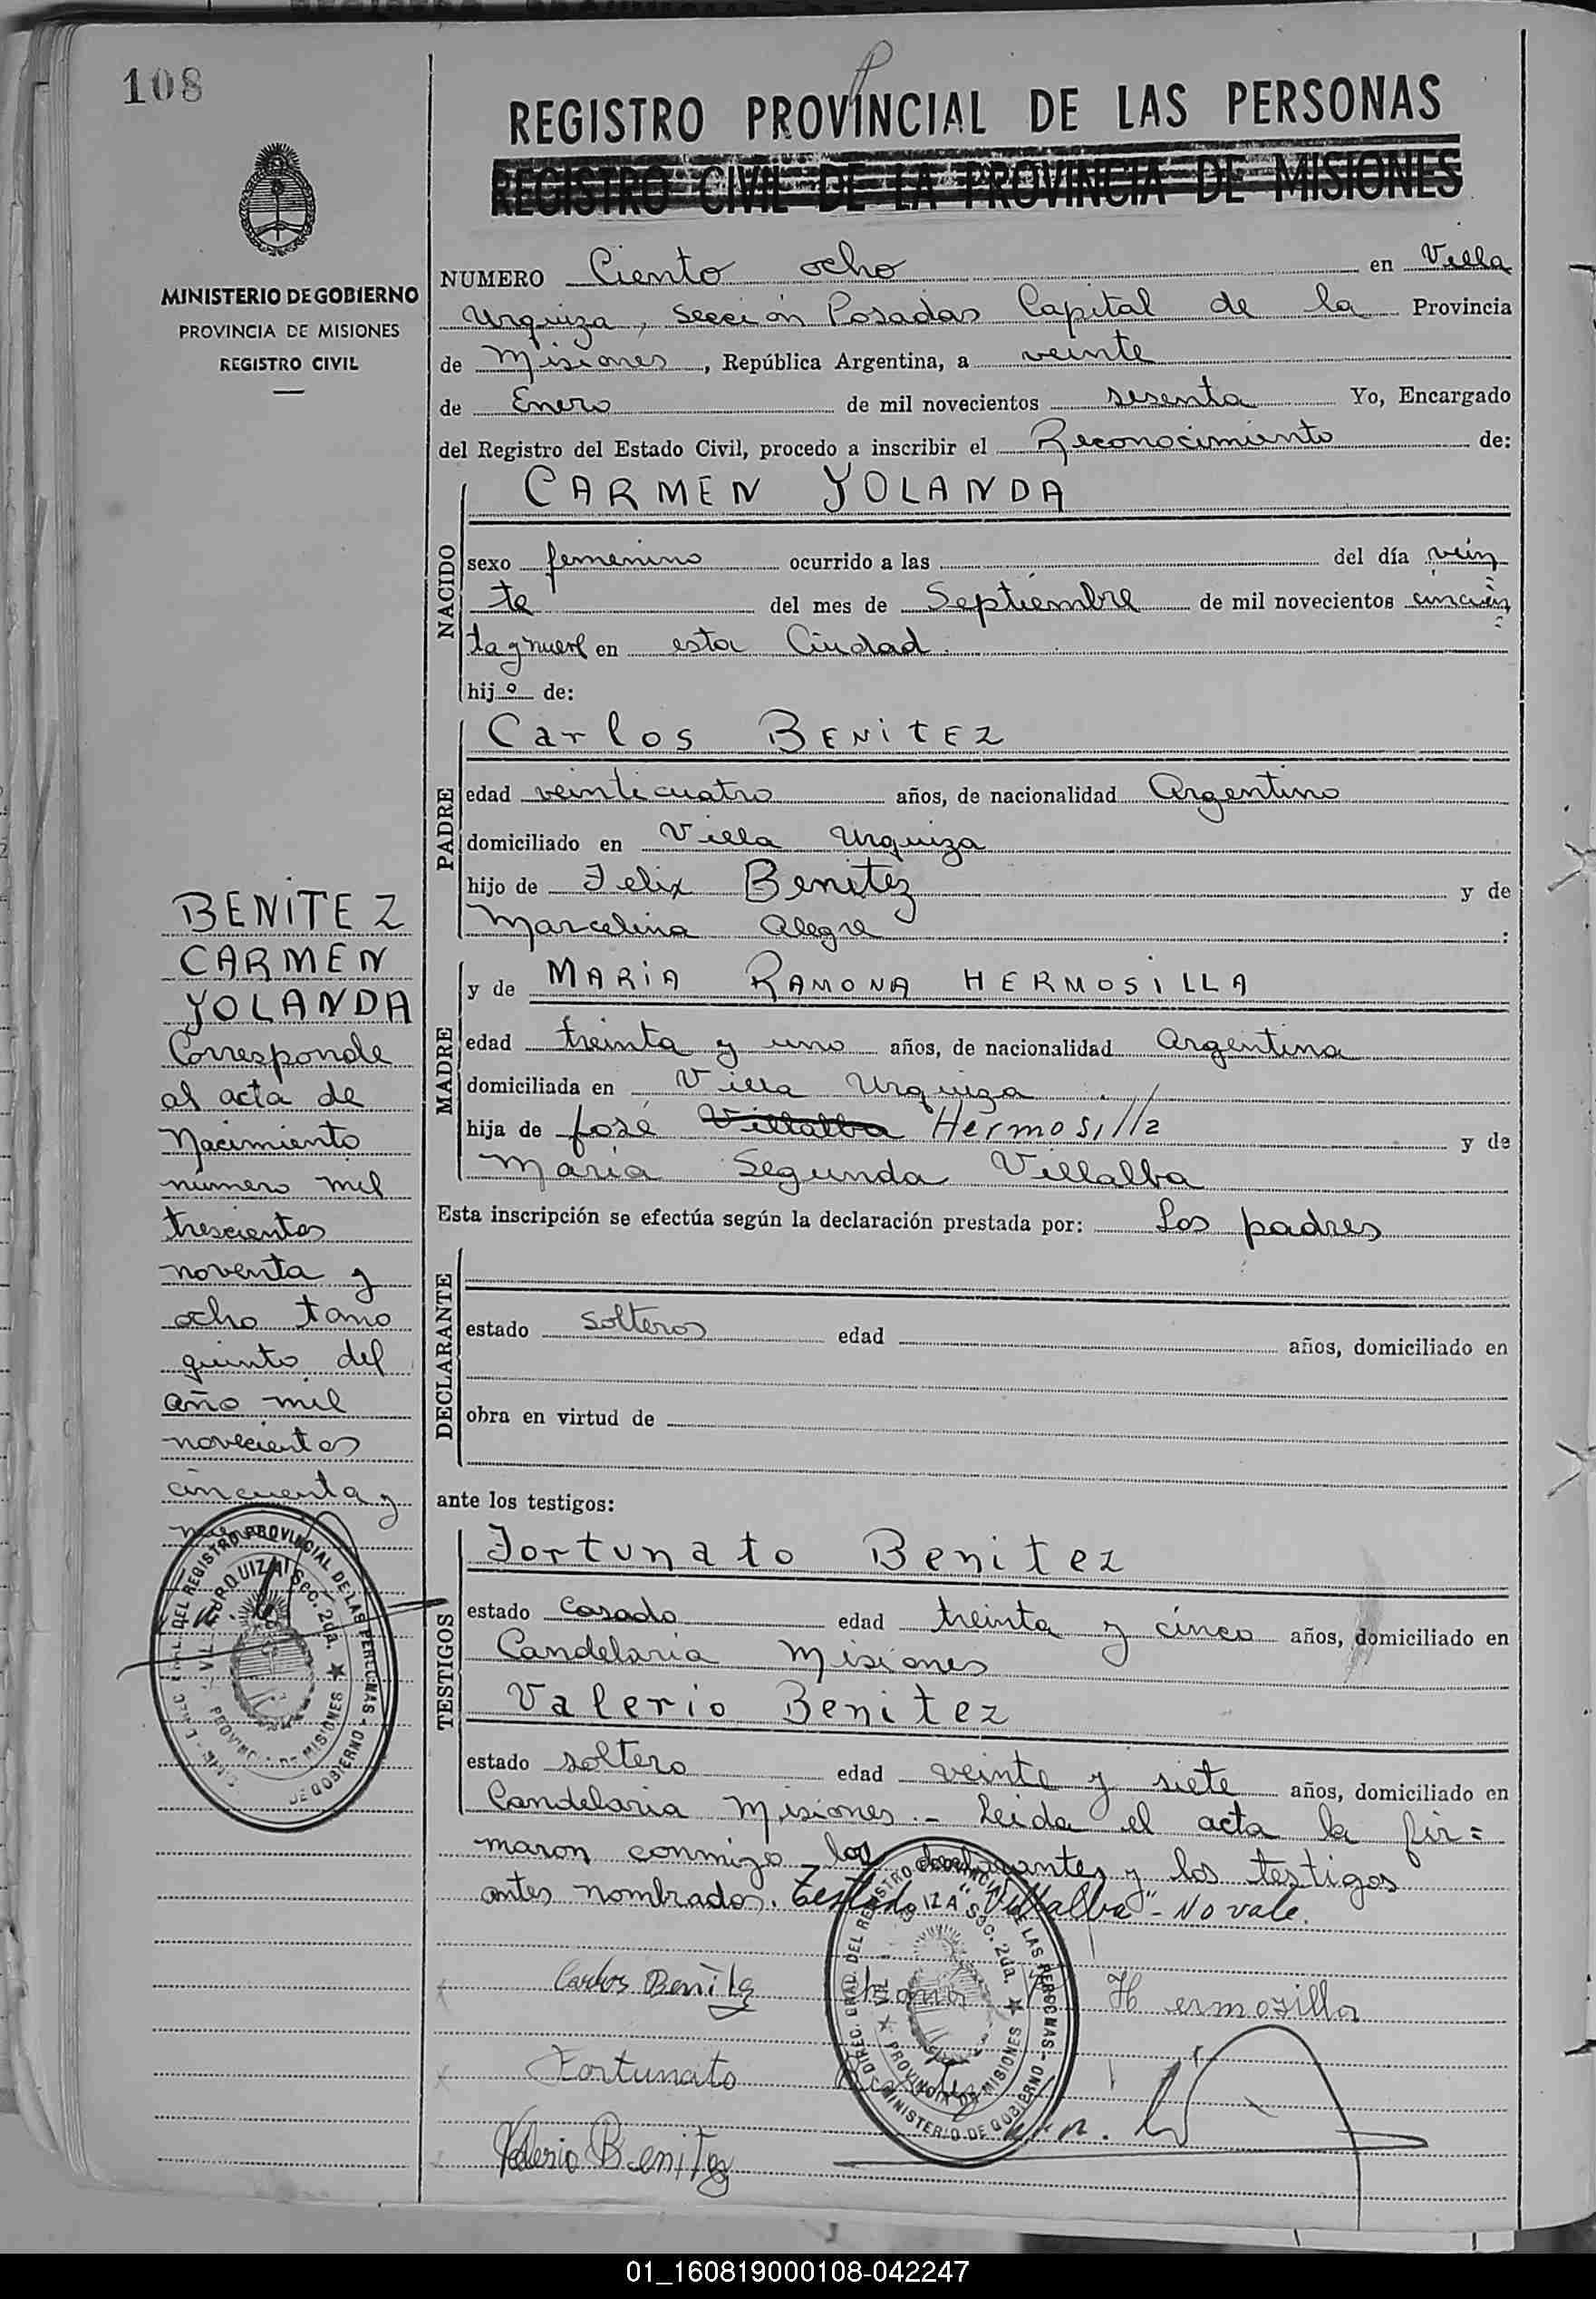 108
REGISTRO PROVINCIAL DE LAS PERSONAS
REGISTRO CIVIL DE LA PROVINCIA DE MISIONES
MINISTERIO DE GOBIERNO
PROVINCIA DE MISIONES
REGISTRO CIVIL
NUMERO Ciento ocho en Villa
Urquiza, Sección Posadas Capital de la Provincia
de Misiones, República Argentina, a veinte
de Enero de mil novecientos sesenta Yo, Encargado
del Registro del Estado Civil, procedo a inscribir el Reconocimiento de:
NACIDO
CARMEN YOLANDA
sexo femenino ocurrido a las del día vein
te del mes de Septiembre de mil novecientos cincuen
ta y nueve en esta Ciudad.
hijo de:
PADRE
Carlos BENITEZ
edad veinticuatro años, de nacionalidad Argentino
domiciliado en Villa Urquiza
hijo de Felix Benitez y de
Marcelina Alegre :
MADRE
y de MARIA RAMONA HERMOSILLA
edad treinta y uno años, de nacionalidad Argentina
domiciliada en Villa Urquiza
hija de José Villalba Hermosilla y de
María Segunda Villalba
Esta inscripción se efectúa según la declaración prestada por: Los padres
DECLARANTE
estado solteros edad años, domiciliado en
obra en virtud de
ante los testigos:
TESTIGOS
Fortunato Benitez
estado Casado edad treinta y cinco años, domiciliado en
Candelaria Misiones
Valerio Benitez
estado soltero edad veinte y siete años, domiciliado en
Candelaria Misiones.- Leida el acta la fir=
maron conmigo los declarantes y los testigos
antes nombrados. Testado "Villalba" - No vale.
Carlos Benitez Maria Hermosilla
Fortunato Benitez
Valerio Benitez
BENITEZ
CARMEN
YOLANDA
Corresponde
al acta de
Nacimiento
número mil
trescientos
noventa y
ocho tomo
quinto del
año mil
novecientos
cincuenta y
DIREC. GRAL. DEL REGISTRO PROVINCIAL DE LAS PERSONAS - MINISTERIO DE GOBIERNO
URQUIZA Sec. 2da.
PROVINCIA DE MISIONES
01_160819000108-042247